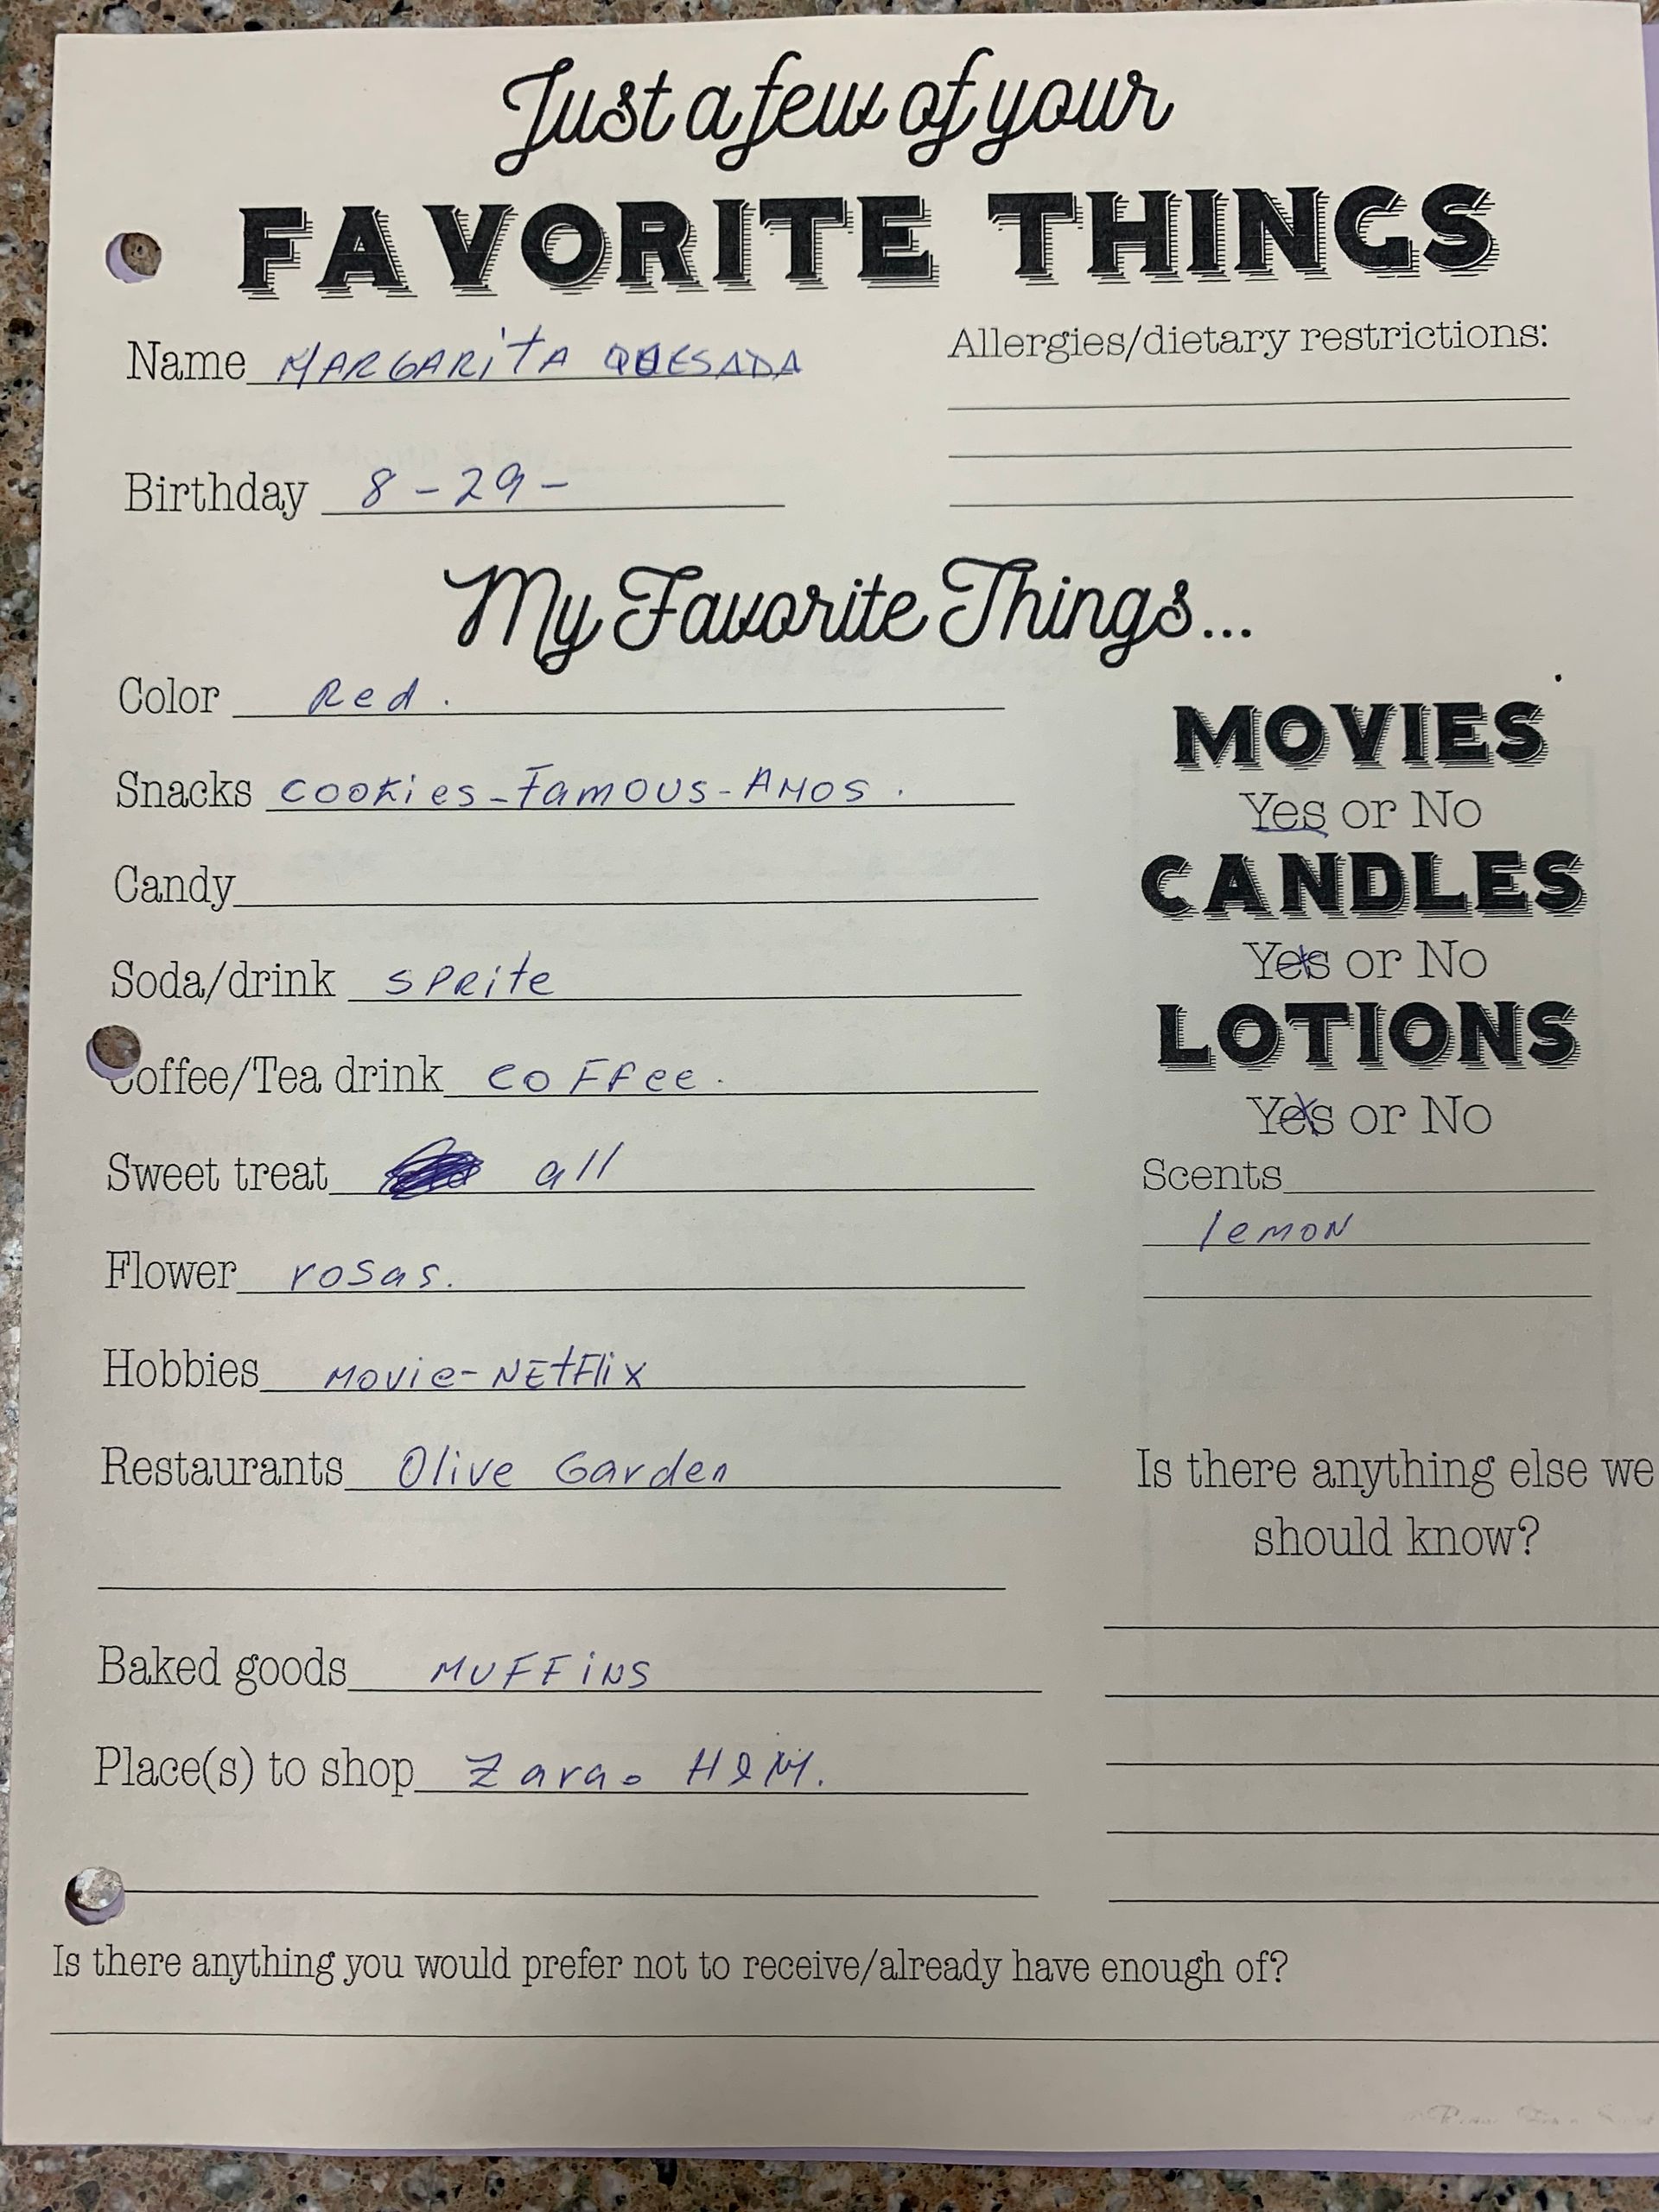 Just a few of your
FAVORITE THINGS
Name MARGARITA QUESADA
Allergies/dietary restrictions:
Birthday 8-29-
My Favorite Things...
Color Red.
Snacks cookies-Famous-Amos.
Candy
Soda/drink sprite
Coffee/Tea drink coffee.
Sweet treat all
Flower rosas.
Hobbies Movie-NEtFlix
Restaurants Olive Garden
Baked goods MUFFiNS
Place(s) to shop Zara. H&M.
MOVIES
Yes or No
CANDLES
Yes or No
LOTIONS
Yes or No
Scents
lemon
Is there anything else we
should know?
Is there anything you would prefer not to receive/already have enough of?